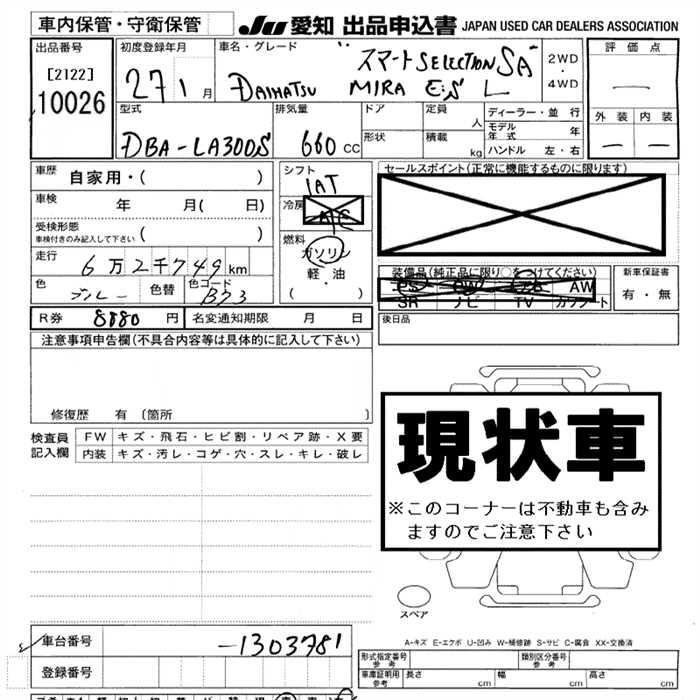 車内保管・守衛保管
JU 愛知 出品申込書 JAPAN USED CAR DEALERS ASSOCIATION
出品番号
[2122]
10026
初度登録年月
27 1 月
車名・グレード
"スマートSELECTION SA"
DAIHATSU MIRA E:S L
2WD
・
4WD
評価点
外装 内装
型式
DBA-LA300S
排気量
660 cc
ドア
形状
定員 人
積載 kg
ディーラー・並行
モデル年式 年
ハンドル 左・右
車歴 自家用・( )
車検 年 月( 日)
受検形態
車検付きのみ記入して下さい ( )
走行 6万2千749km
色 ブルー 色替 色コード B73
シフト
IAT
冷房
A/C
燃料
ガソリン
軽・油
( )
セールスポイント(正常に機能するものに限ります)
装備品(純正品に限り○をつけてください)
PS PW AB AW
SR ナビ TV カワシート
新車保証書
有・無
R券 8880 円 名変通知期限 月 日
後日品
注意事項申告欄(不具合内容等は具体的に記入して下さい)
修復歴 有 〔箇所
検査員記入欄
FW キズ・飛石・ヒビ割・リペア跡・X要
内装 キズ・汚レ・コゲ・穴・スレ・キレ・破レ
現状車
※このコーナーは不動車も含み
ますのでご注意下さい
スペア
A-キズ E-エクボ U-凹み W-補修跡 S-サビ C-腐食 XX-交換済
車台番号 -1303781
登録番号
形式指定番号 参考
類別区分番号 参考
車庫証明用 参考 長さ cm 幅 cm 高さ cm